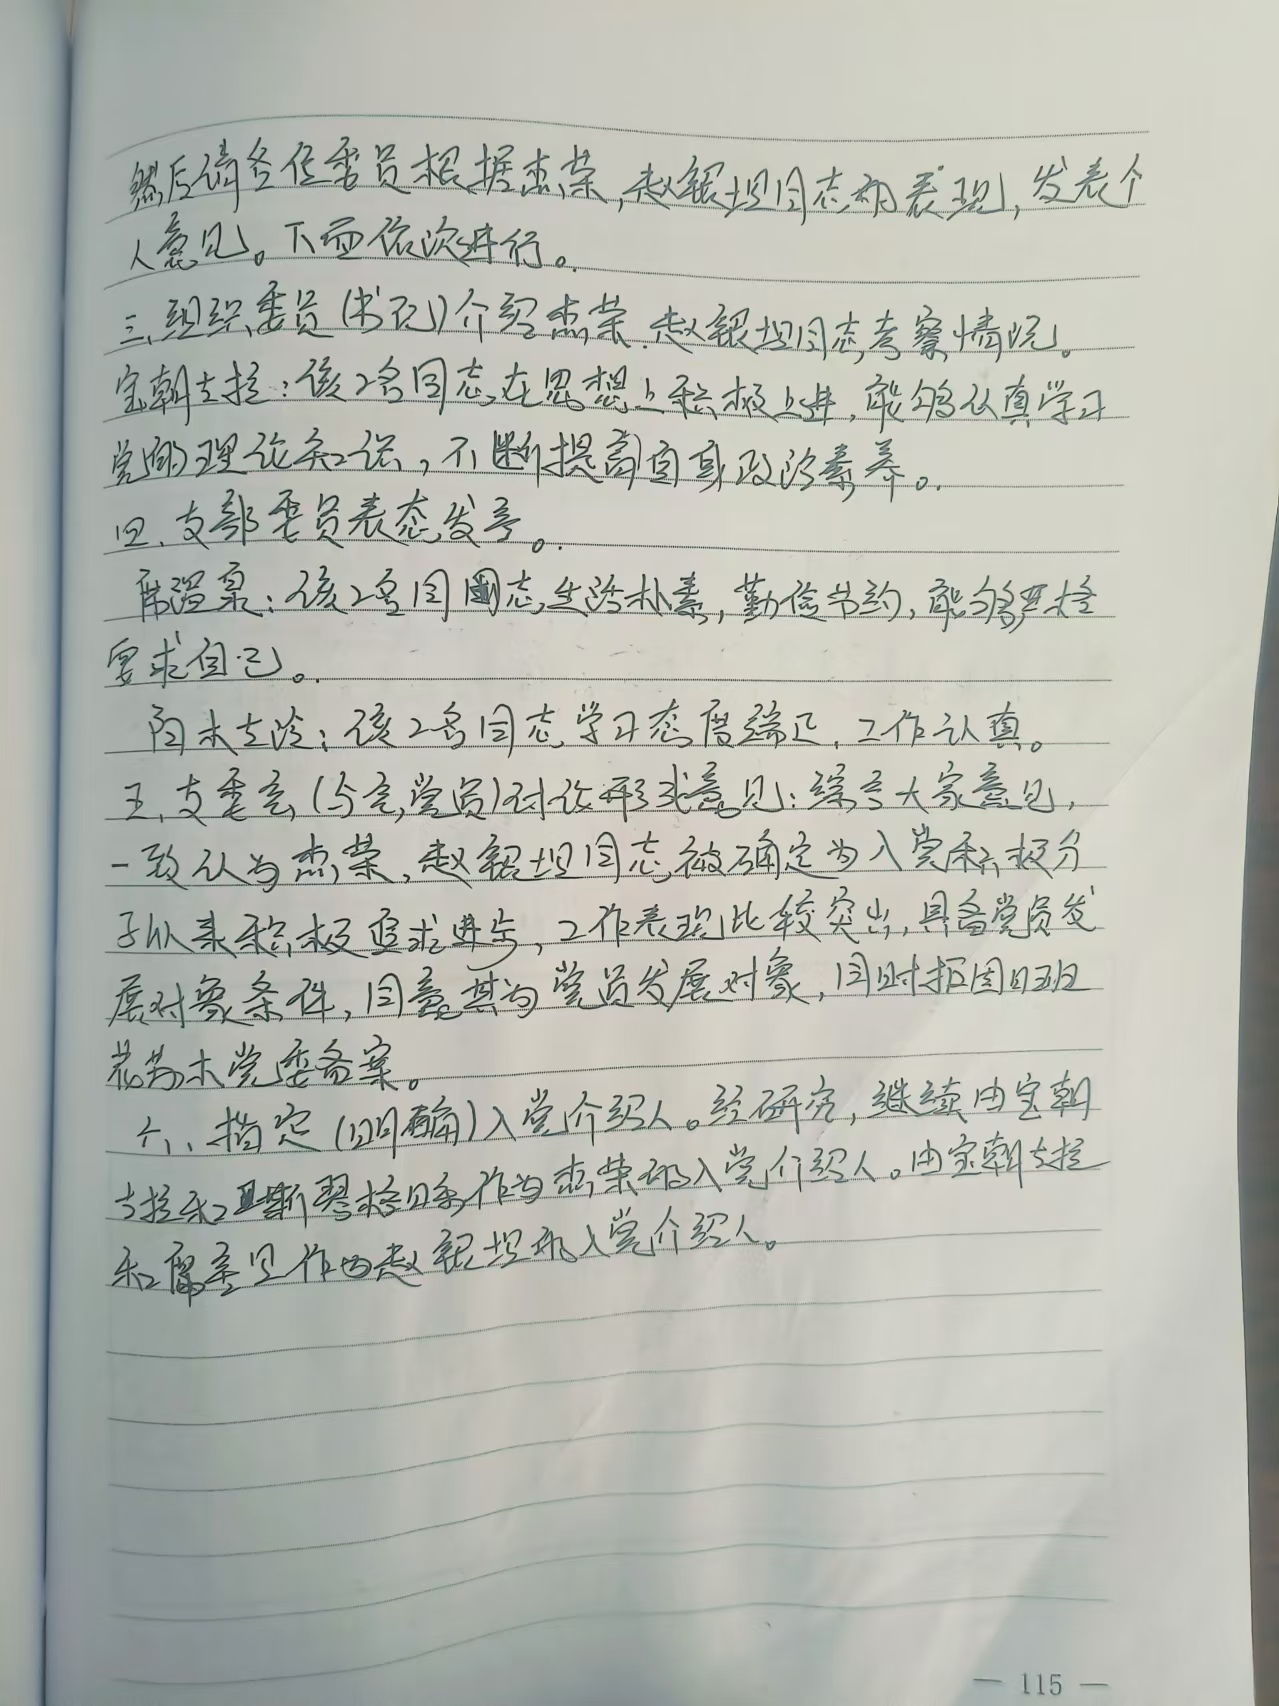 然后请各位委员根据杰荣,赵银坦同志的表现,发表个
人意见。下面依次进行。
三、组织委员(书记)介绍杰荣、赵银坦同志考察情况。
宝朝古拉:该2名同志在思想上积极上进,能够认真学习
党的理论知识,不断提高自身政治素养。
四、支部委员表态发言。
席温泉:该2名同志生活朴素,勤俭节约,能够严格
要求自己。
阿木古冷:该2名同志学习态度端正,工作认真。
五、支委会(与会党员)讨论形成意见:综合大家意见,
一致认为杰荣,赵银坦同志被确定为入党积极分
子以来积极追求进步,工作表现比较突出,具备党员发
展对象条件,同意其为党员发展对象,同时报图日班
花苏木党委备案。
六、指定(明确)入党介绍人。经研究,继续由宝朝
古拉和斯琴格日乐作为杰荣的入党介绍人。由宝朝古拉
和 作为赵银坦的入党介绍人。
— 115 —